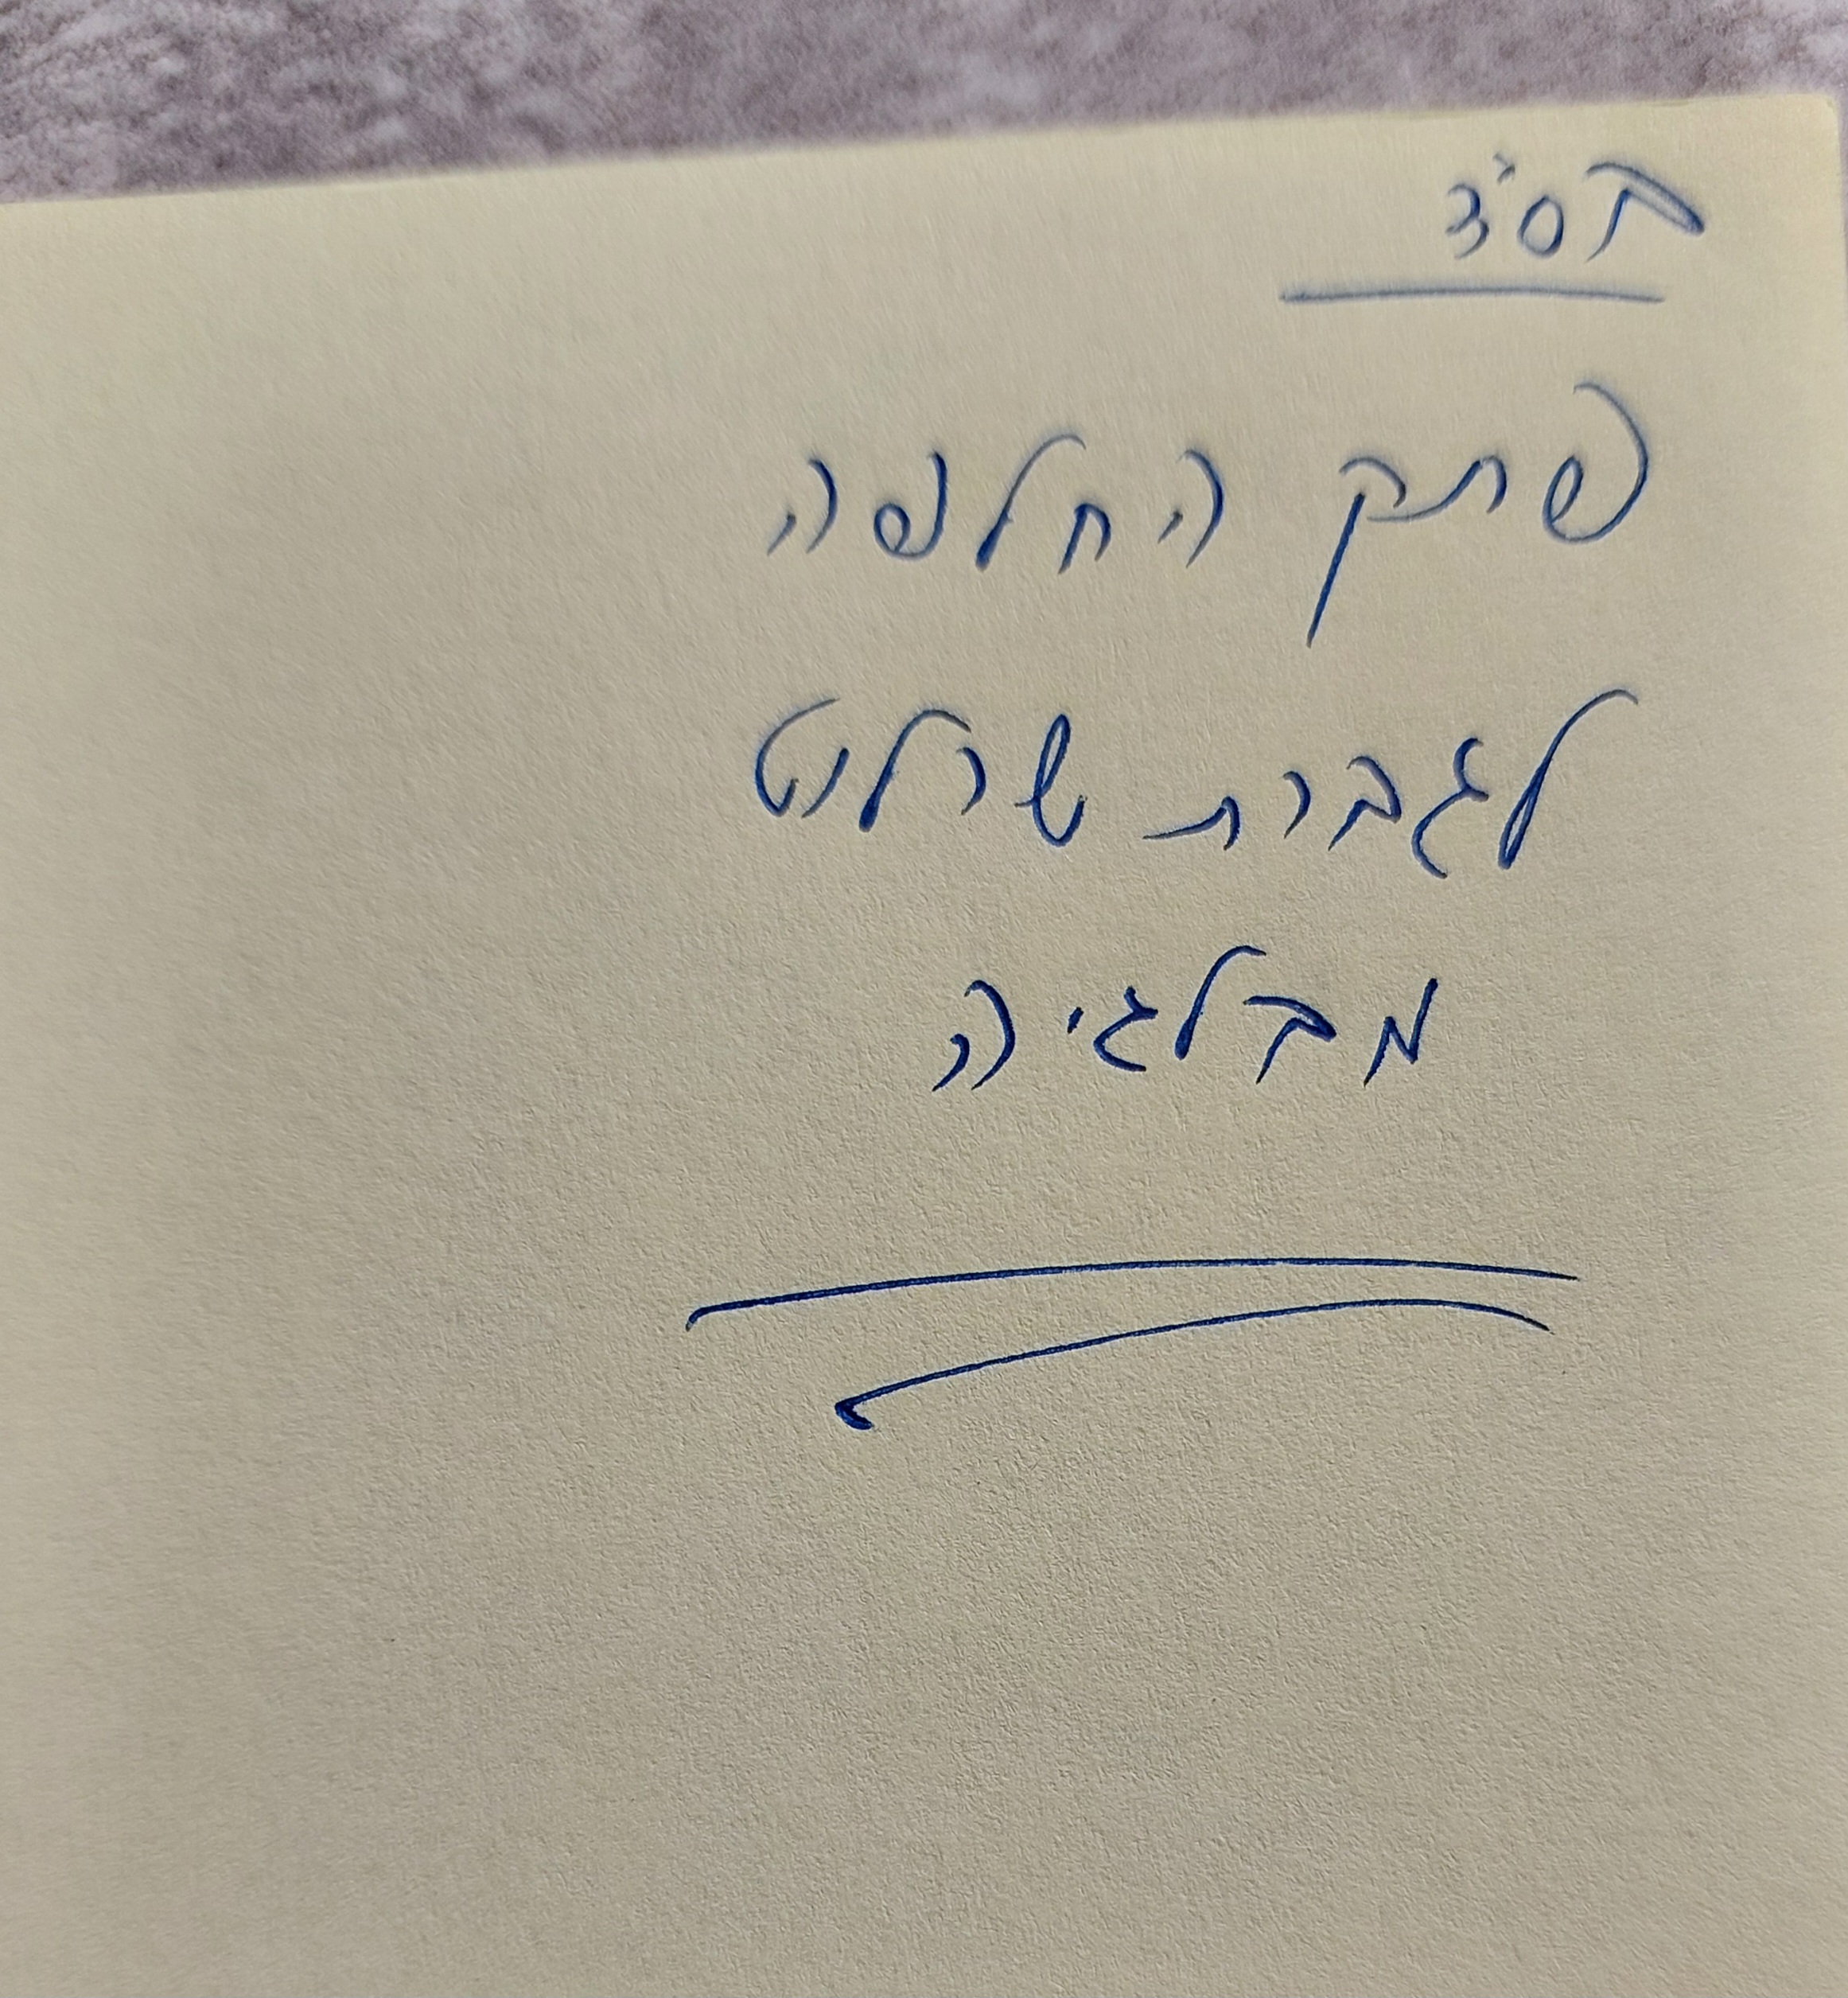 בס"ד
פתק החלפה
לגברת שרלוט
מבלגיה